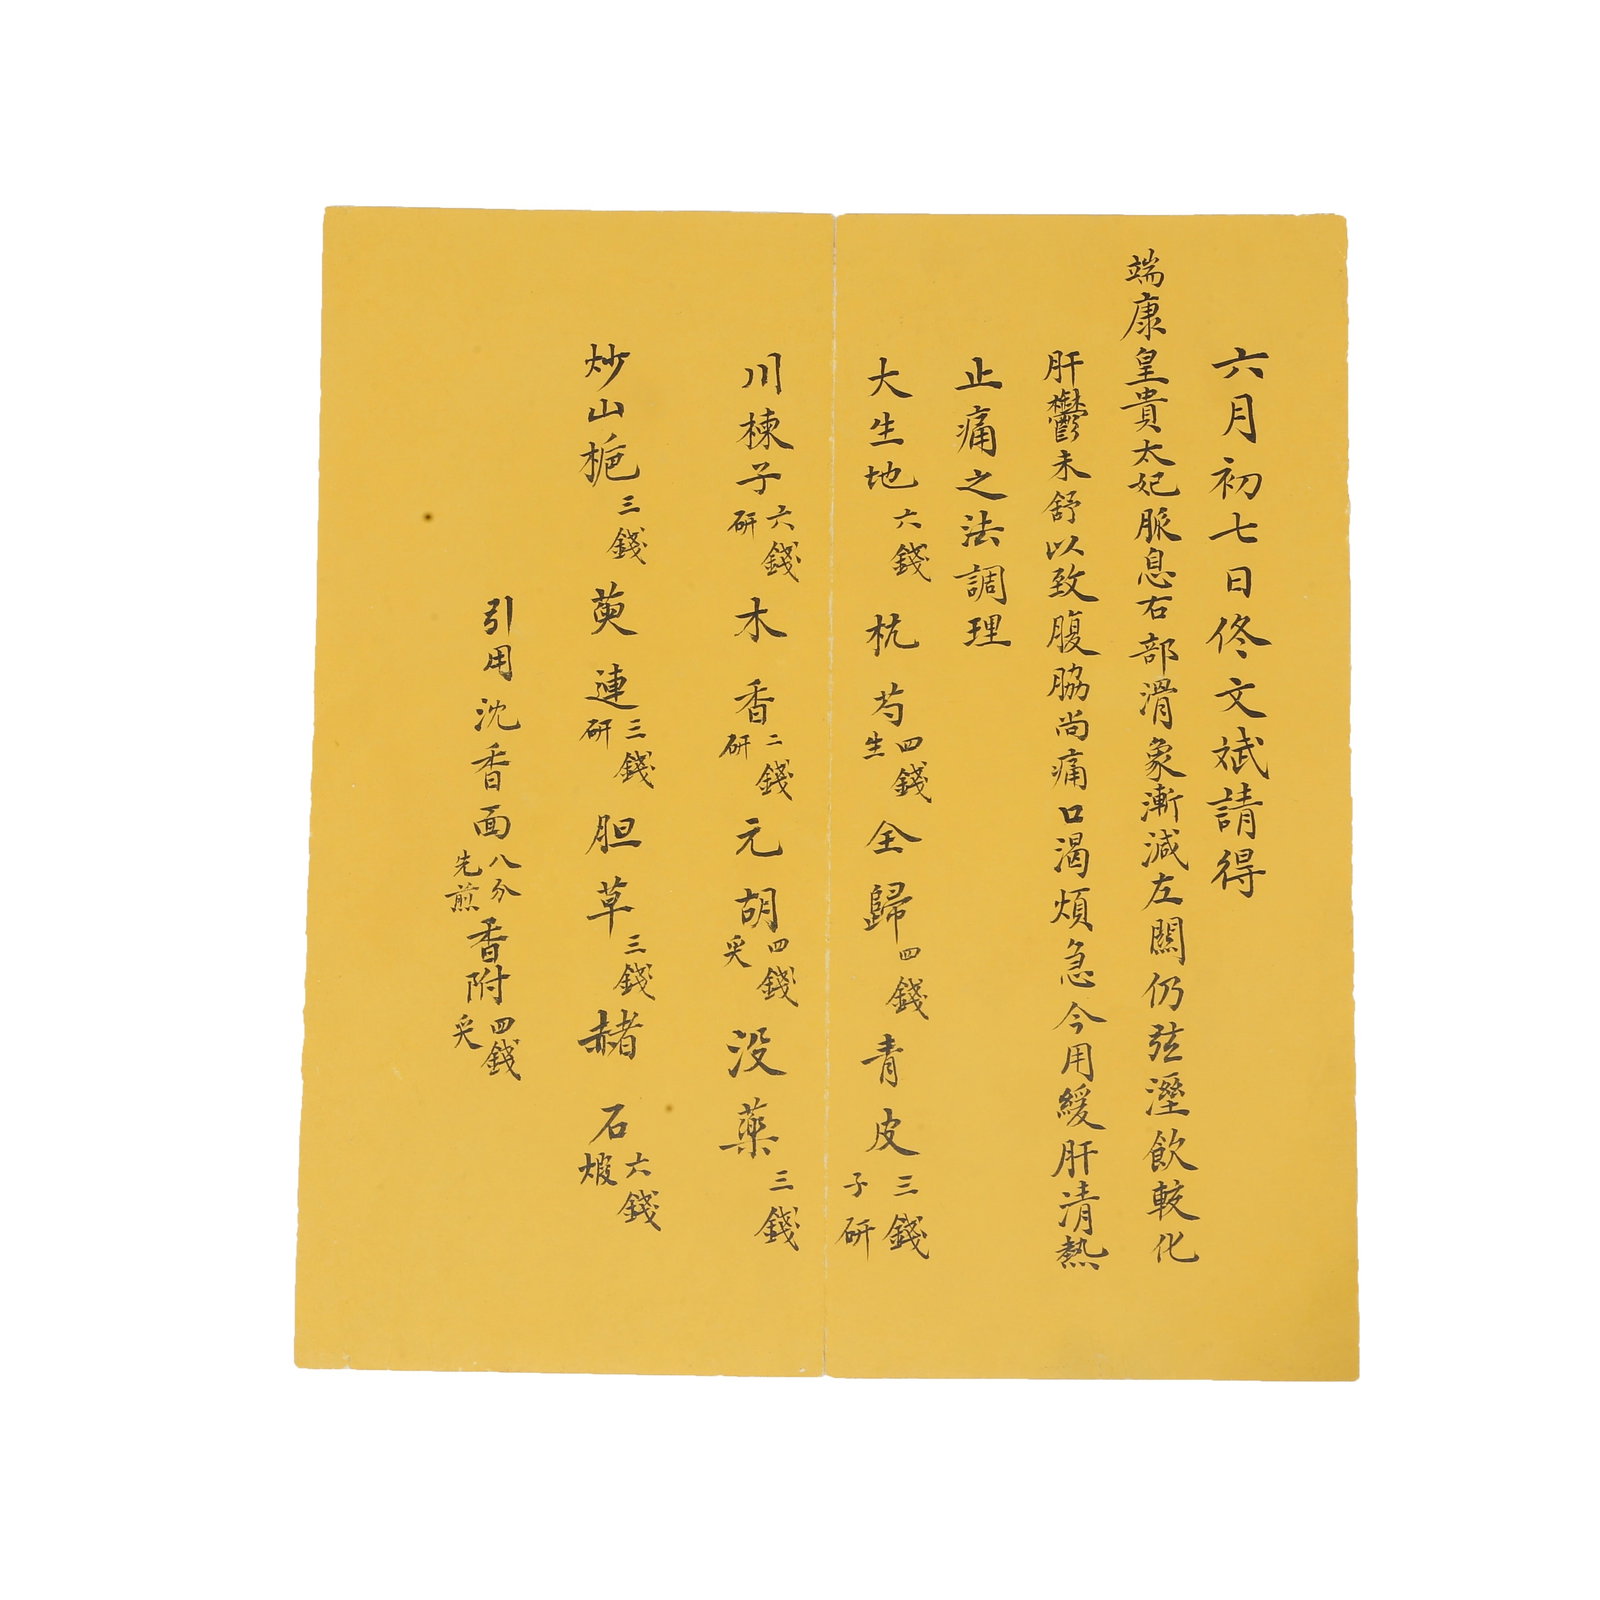 六月初七日佟文斌請得
端康皇貴太妃脈息右部滑象漸減左關仍弦溼飲較化
肝鬱未舒以致腹脇尚痛口渴煩急今用緩肝清熱
止痛之法調理
大生地六錢 杭芍四錢生 全歸四錢 青皮三錢子研
川楝子六錢研 木香二錢研 元胡四錢炙 没藥三錢
炒山梔三錢 萸連三錢研 胆草三錢 赭石六錢煅
引用沈香面八分先煎 香附四錢炙